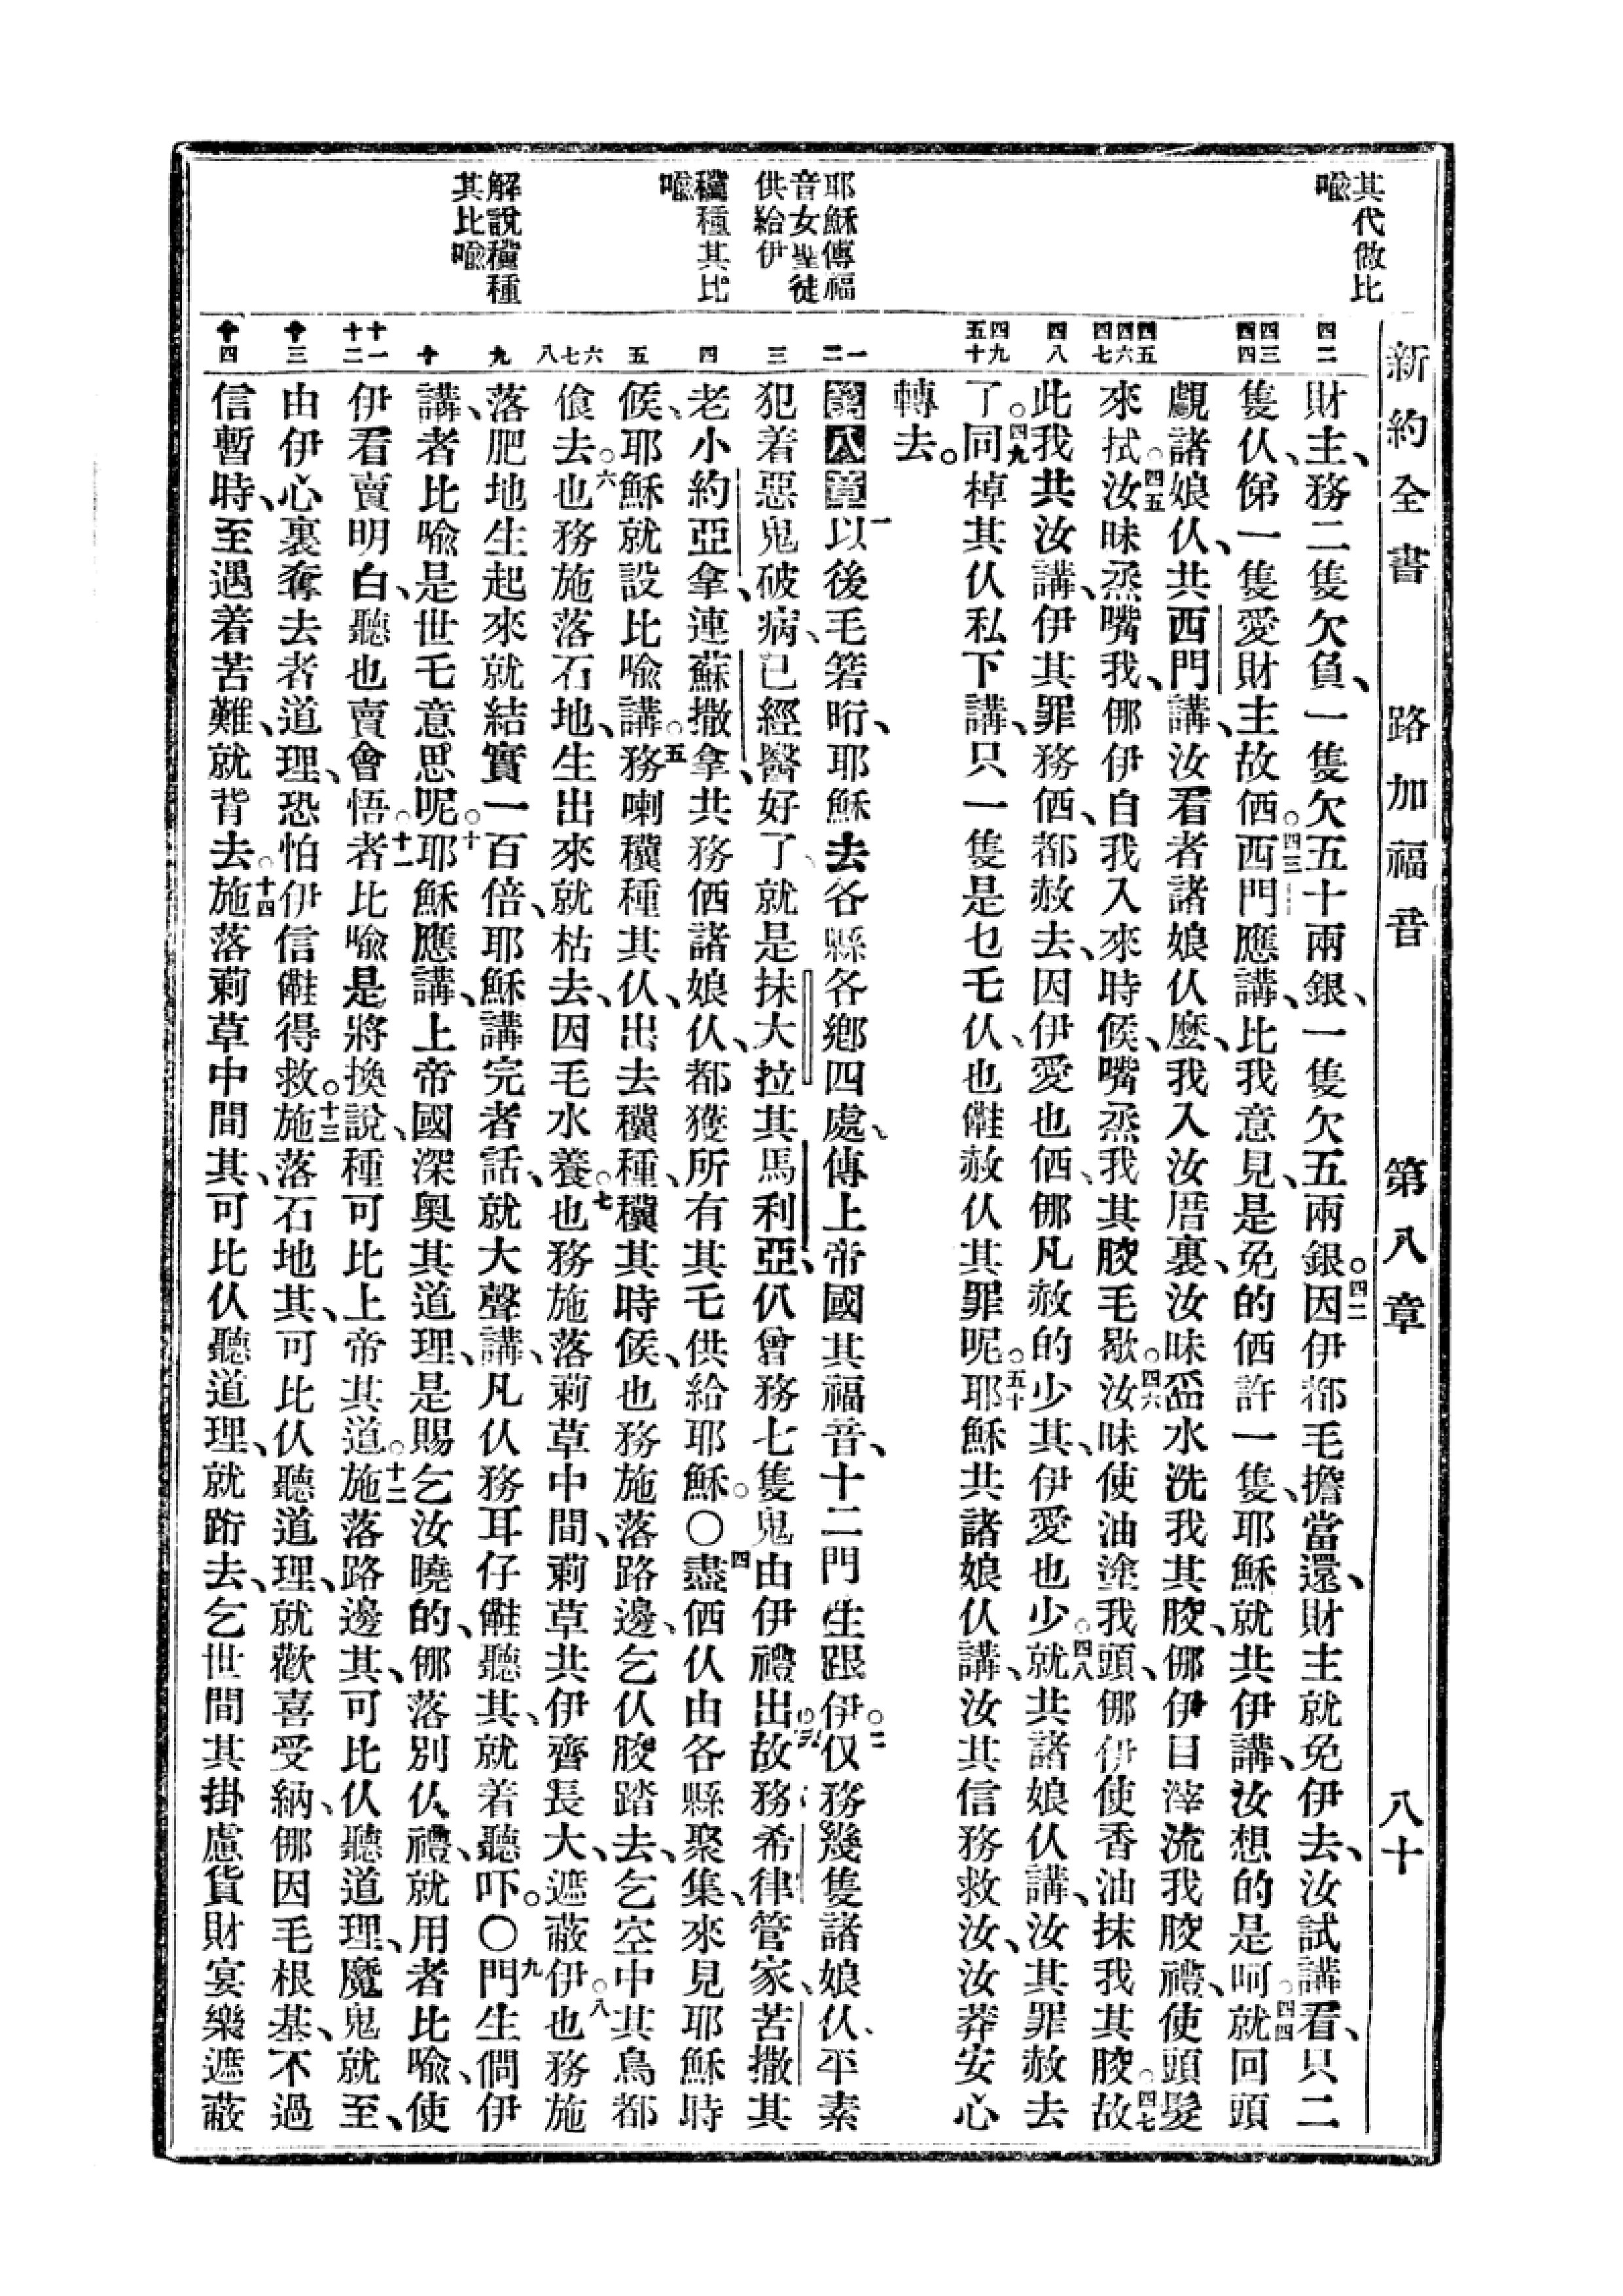 新約全書 路加福音 第八章 八十
其代做比
喩
耶穌傳福
音女聖徒
供給伊
穬種其比
喩
解說穬種
其比喩
四二
四三
四四
四五
四六
四七
四八
四九
五十
一
二
三
四
五
六
七
八
九
十
十一
十二
十三
十四
財主、務二隻欠負、一隻欠五十兩銀、一隻欠五兩銀。四二因伊都毛擔當還、財主就免伊去、汝試講看、只二
隻仈、俤一隻愛財主故価。四三西門應講、比我意見、是免的価許一隻、耶穌就共伊講、汝想的是呵。四四就回頭
覰諸娘仈、共西門講、汝看者諸娘仈麽、我入汝厝裏、汝昧𥁐水洗我其骹、倻伊目滓流我骹禮、使頭髮
來拭。四五汝昧烝嘴我、倻伊自我入來時候、嘴烝我其骹毛歇。四六汝昧使油塗我頭、倻伊使香油抹我其骹。四七故
此我共汝講、伊其罪務価、都赦去、因伊愛也価、倻凡赦的少其、伊愛也少。四八就共諸娘仈講、汝其罪赦去
了。四九同棹其仈私下講、只一隻是乜乇仈、也㑚赦仈其罪呢。五十耶穌共諸娘仈講、汝其信務救汝、汝莽安心
轉去。
第八章 一以後毛箬晍、耶穌去各縣各鄕四處、傳上帝國其福音、十二門生跟伊。二仅務幾隻諸娘仈、平素
犯着惡鬼破病、已經醫好了、就是抹大拉其馬利亞、仈曾務七隻鬼由伊禮出。三故務希律管家、苦撒其
老小約亞拿、連蘇撒拿、共務価諸娘仈、都獲所有其乇供給耶穌。〇四盡価仈由各縣聚集、來見耶穌時
候、耶穌就設比喩講。五務喇穬種其仈、出去穬種、穬其時候、也務施落路邊、乞仈骹踏去、乞空中其鳥都
飧去。六也務施落石地、生出來就枯去、因毛水養。七也務施落莿草中間、莿草共伊齊長大、遮蔽伊。八也務施
落肥地生起來就結實一百倍、耶穌講完者話、就大聲講、凡仈務耳仔㑚聽其、就着聽吓。〇九門生僩伊
講、者比喩是世乇意思呢。十耶穌應講、上帝國深奧其道理、是賜乞汝曉的、倻落別仈禮、就用者比喩、使
伊看賣明白、聽也賣會悟。十一者比喩是將換說、種可比上帝其道。十二施落路邊其、可比仈聽道理、魔鬼就至、
由伊心裏奪去者道理、恐怕伊信㑚得救。十三施落石地其、可比仈聽道理、就歡喜受納、倻因毛根基、不過
信暫時、至遇着苦難、就背去。十四施落莿草中間其、可比仈聽道理、就跡去、乞世間其掛慮貨財宴樂遮蔽